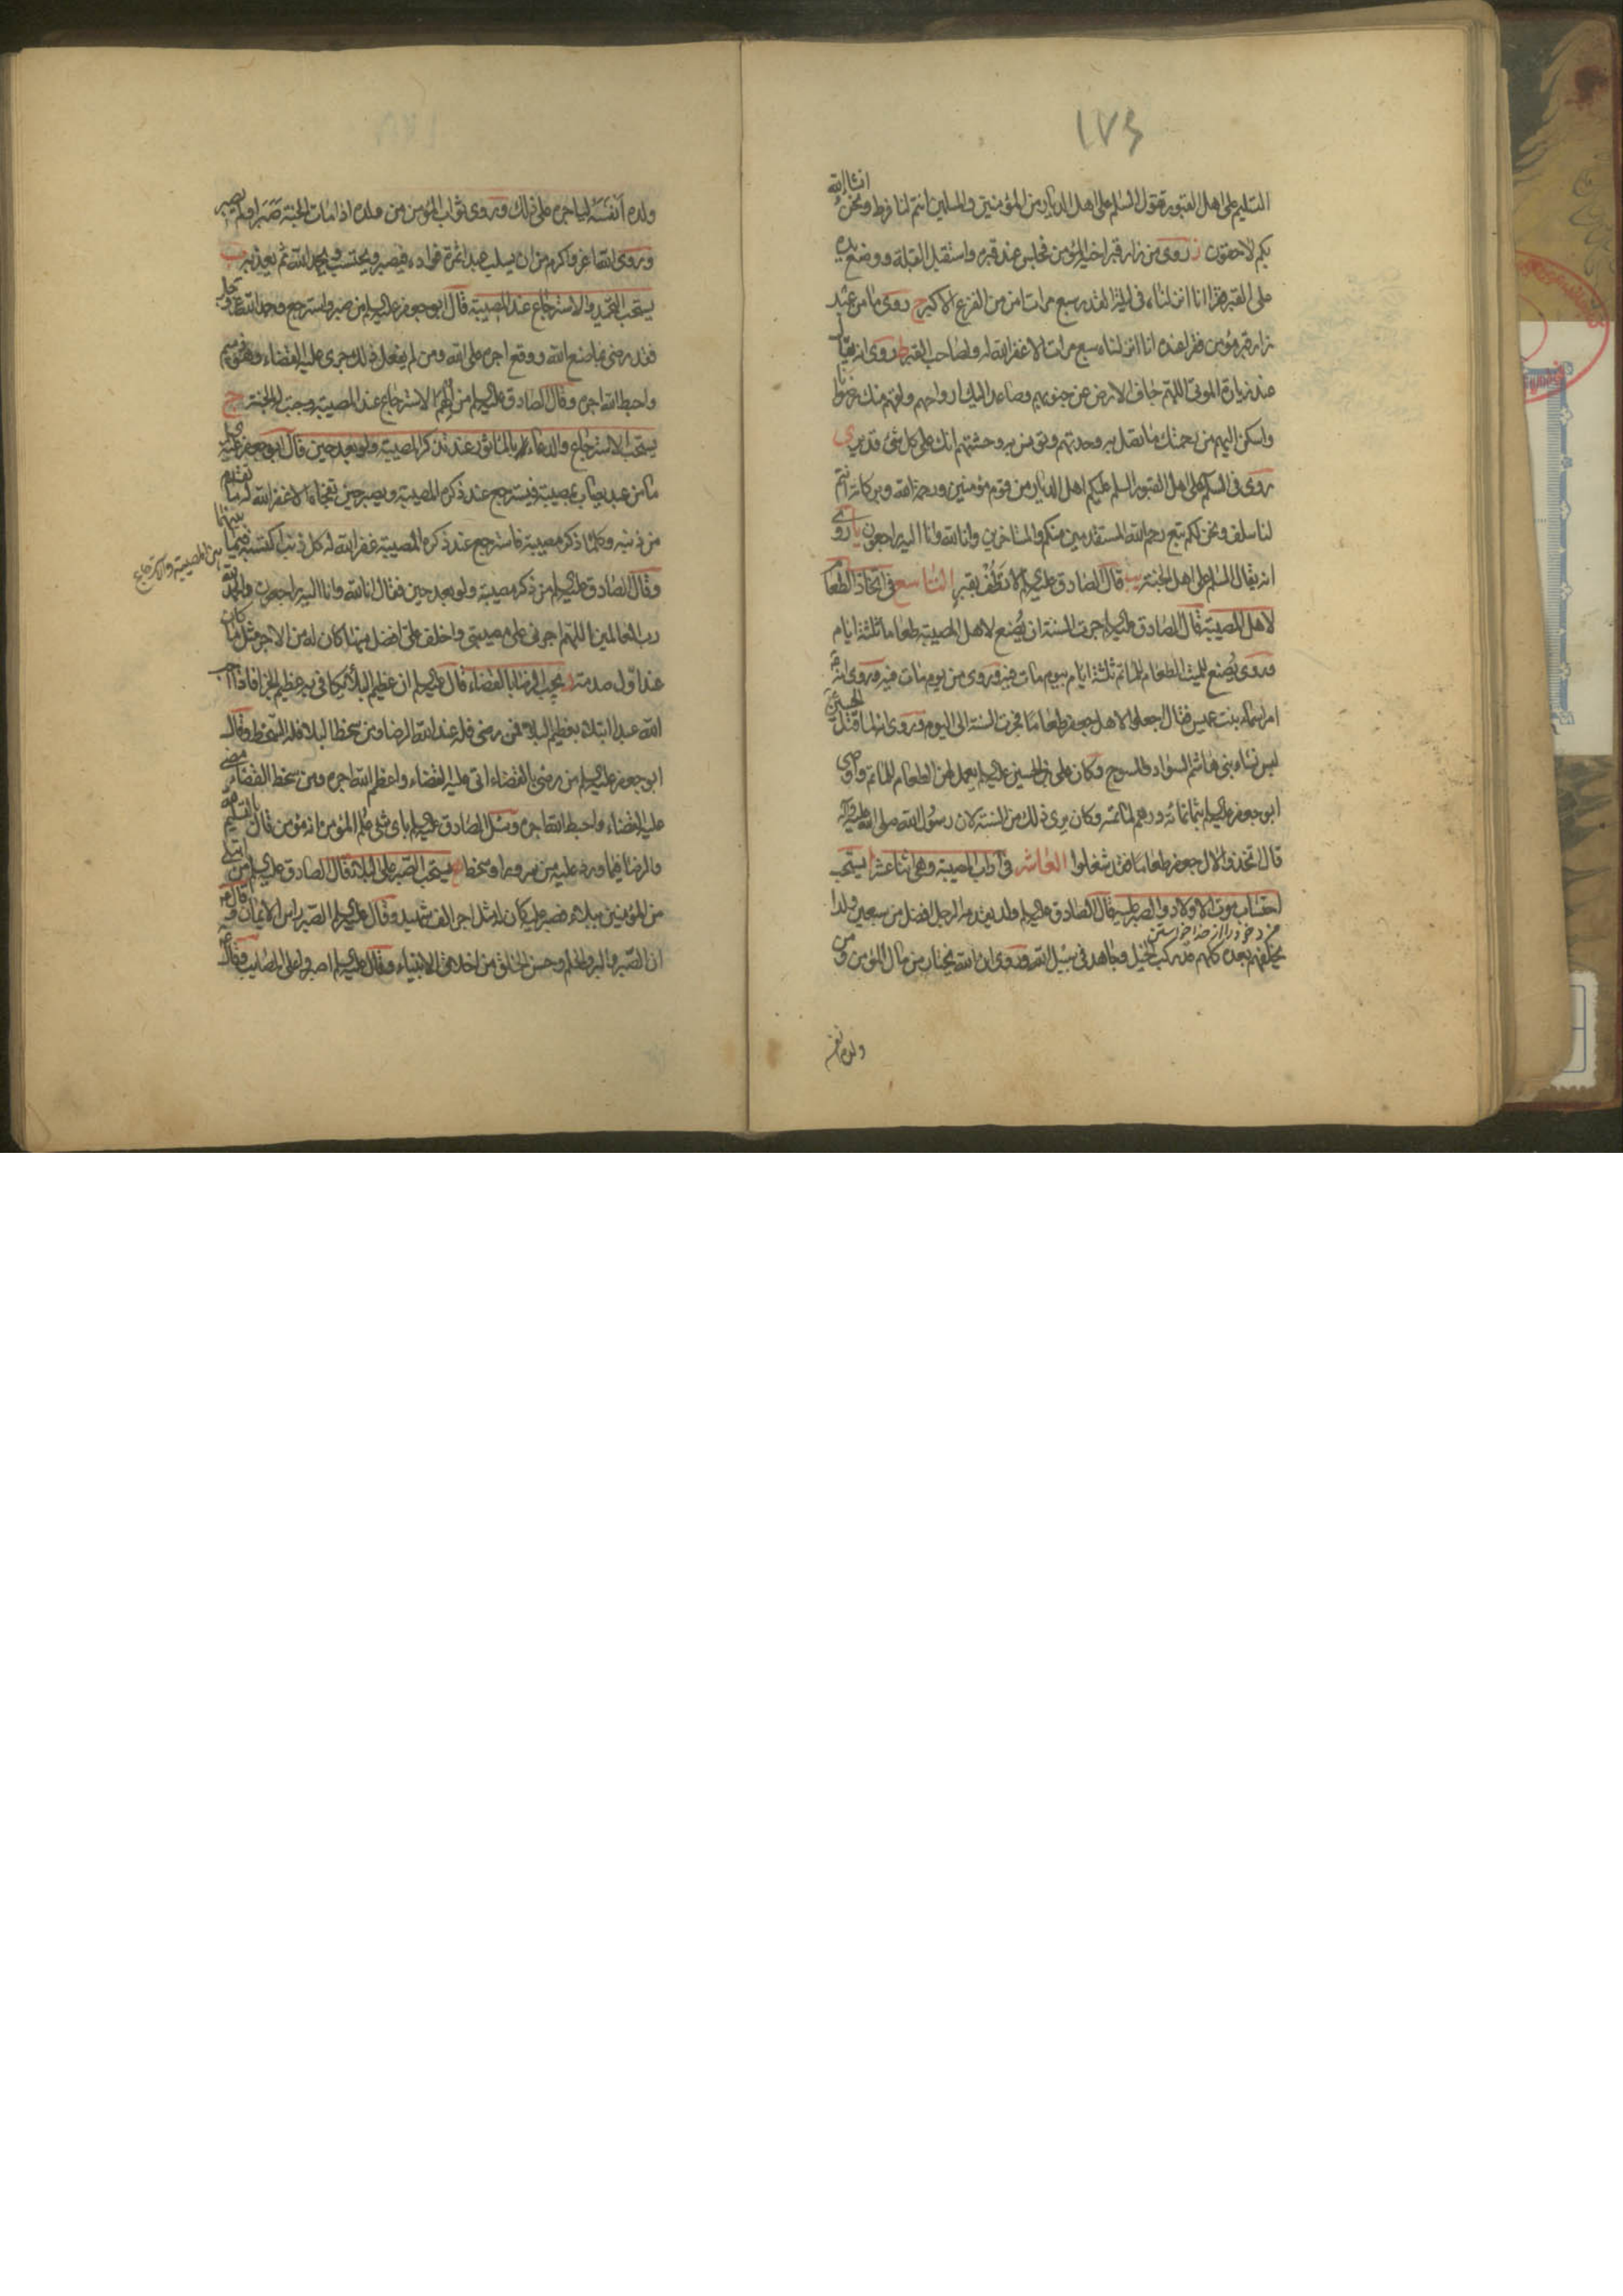 ١٧٤
التسليم على اهل القبور تقول السلم على اهل الديار من المؤمنين والمسلمين انتم لنا فرط ونحن انشاالله
بكم لاحقون ز روى من زار قبر اخيه المؤمن فجلس عند قبره واستقبل القبلة ووضع يده
على القبر فقرأ انا انزلناه في ليلة القدر سبع مرات امن من الفزع الاكبر ح روى ما من عبد
زار قبر مؤمن فقرا عنده انا انزلناه سبع مرات الا غفر الله له ولصاحب القبر ط روى انه يقال
عند زيارة الموتى اللهم جاف الارض عن جنوبهم وصاعد اليك ارواحهم ولقهم منك رضوانا
واسكن اليهم من رحمتك ما تصل به وحدتهم وتونس به وحشتهم انك على كل شئ قدير ي
روى في السلم على اهل القبور السلم عليكم اهل الديار من قوم مؤمنين ورحمة الله وبركاته انتم
لنا سلف ونحن لكم تبع رحم الله المستقدمين منكم والمتاخرين وانا لله وانا اليه راجعون يا روى
انه يقال السلم على اهل الجنة يب قال الصادق عليه السلم لا تطف بقبر التاسع في اتخاذ الطعام
لاهل المصيبة قال الصادق عليه السلم جرت السنة ان يصنع لاهل المصيبة طعاما ثلثة ايام
وروى يصنع للميت الطعام للماتم ثلثة ايام بيوم مات فيه وروى من يوم مات فيه وروى انه
امر اسماء بنت عميس فقال اجعلوا لاهل جعفر طعاما فجرت السنة الى اليوم وروى انه لما قتل الحسين
لبس نساء بني هاشم السواد والمسوح وكان على بن الحسين عليه السلم يعمل لهن الطعام للماتم واوصى
ابو جعفر عليه السلم بثمانمائة درهم لماتمه وكان يرى ذلك من السنة لان رسول الله صلى الله عليه وآله
قال اتخذوا لال جعفر طعاما فقد شغلوا العاشر في آداب المصيبة وهي اثنا عشر ا يستحب
احتساب موت الاولاد والصبر عليه قال الصادق عليه السلم ولد يقدمه الرجل افضل من سبعين ولدا
مزد خود را از خدا خواستن
يخلفهم بعده كلهم قد ركب الخيل وجاهد في سبيل الله وروى ان الله يختار من مال المؤمن ومن
ولده انفسه
ولده انفسه لياجره على ذلك وروى ثواب المؤمن من ولده اذا مات الجنة صبر او لم يصبر
وروى الله اعز واكرم من ان يسلب عبدا ثمرة فؤاده فيصبر ويحتسب ويحمد الله ثم يعذبه ب
يستحب التحميد والاسترجاع عند المصيبة قال ابو جعفر عليه السلم من صبر واسترجع وحمد الله عز وجل
فقد رضى بما صنع الله ووقع اجره على الله ومن لم يفعل ذلك جرى عليه القضاء وهو ذميم
واحبط الله اجره وقال الصادق عليه السلم من الهم الاسترجاع عند المصيبة وجبت له الجنة ج
يستحب الاسترجاع والدعاء بالماثور عند تذكر المصيبة ولو بعد حين قال ابو جعفر عليه السلم
ما من عبد يصاب بمصيبة فيسترجع عند ذكره المصيبة ويصبر حين تفجاه الا غفر الله له ما تقدم
من ذنبه وكلما ذكر مصيبة فاسترجع عند ذكره المصيبة غفر الله له كل ذنب اكتسبه فيما بينهما
بين المصيبة والاسترجاع
وقال الصادق عليه السلم من ذكر مصيبة ولو بعد حين فقال انا لله وانا اليه راجعون والحمد لله
رب العالمين اللهم اجرني على مصيبتي واخلف على افضل منها كان له من الاجر مثل ما كان
عند اول صدمته د يجب الرضا بالقضاء قال عليه السلم ان عظيم البلاء يكافي به عظيم الجزا فاذا احب
الله عبدا ابتلاه بعظيم البلاء فمن رضى فله عند الله الرضا ومن سخط البلاء فله السخط وقال
ابو جعفر عليه السلم من رضى بالقضاء اتى عليه القضاء واعظم الله اجره ومن سخط القضاء مضى
عليه القضاء واحبط الله اجره وسئل الصادق عليه السلم باى شئ علم المؤمن انه مؤمن قال بالتسليم لله
والرضا فيما ورد عليه من سرور او سخط ه يستحب الصبر على البلاء قال الصادق عليه السلم من ابتلى
من المؤمنين ببلاء فصبر عليه كان له مثل اجر الف شهيد وقال عليه السلم الصبر راس الايمان وقال
ان الصبر والبر والحلم وحسن الخلق من اخلاق الانبياء وقال عليه السلم اصبروا على المصايب وقال